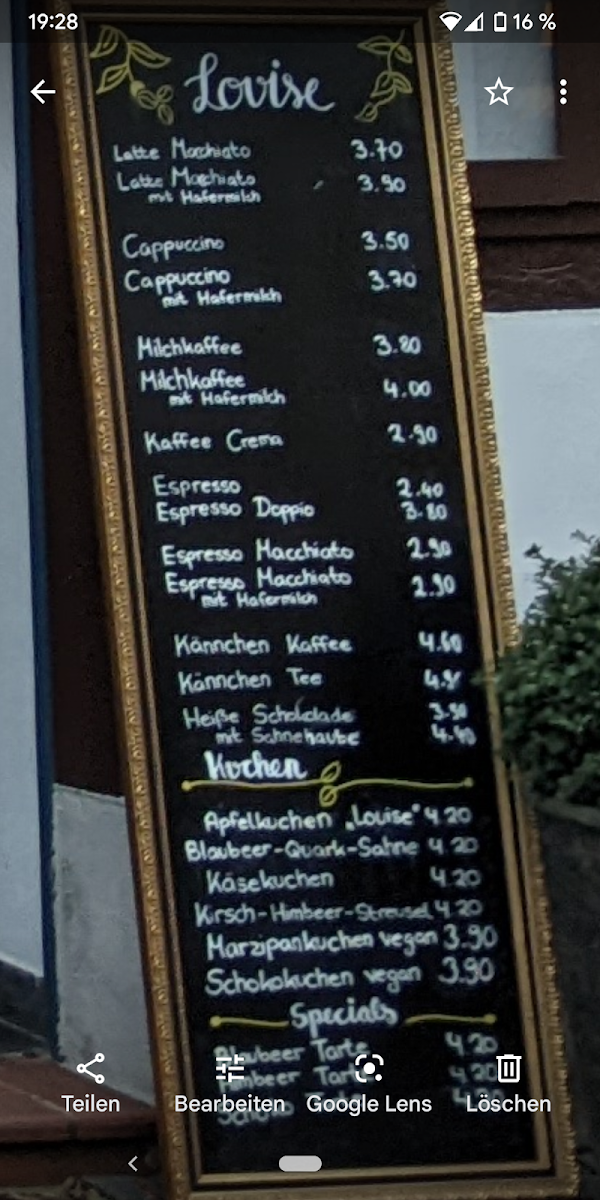 19:28
16 %
Lovise
Latte Macchiato 3.70
Latte Macchiato 3.90
mit Hafermilch
Cappuccino 3.50
Cappuccino 3.70
mit Hafermilch
Milchkaffee 3.80
Milchkaffee 4.00
mit Hafermilch
Kaffee Crema 2.90
Espresso 2.40
Espresso Doppio 3.80
Espresso Macchiato 2.90
Espresso Macchiato 2.90
mit Hafermilch
Kännchen Kaffee 4.60
Kännchen Tee
Heiße Schokolade 3.90
mit Sahnehaube 4.40
Kuchen
Apfelkuchen „Louise" 4.20
Blaubeer-Quark-Sahne 4.20
Käsekuchen 4.20
Kirsch-Himbeer-Streusel 4.20
Marzipankuchen vegan 3.90
Schokokuchen vegan 3.90
Specials
Blaubeer Tarte 4.20
Himbeer Tarte 4.20
Teilen Bearbeiten Google Lens Löschen